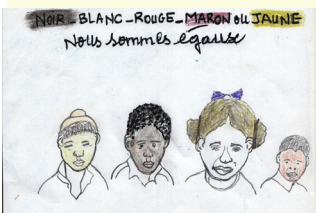 NOIR-BLANC-ROUGE-MARON OU JAUNE
Nous sommes égaux